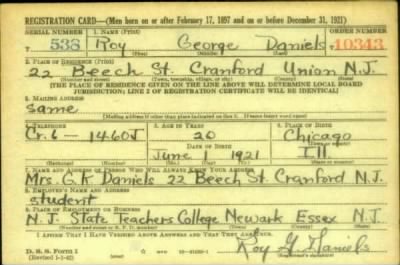 REGISTRATION CARD—(Men born on or after February 17, 1897 and on or before December 31, 1921)
SERIAL NUMBER 1. NAME (Print) ORDER NUMBER
T 538 Roy George Daniels 10343
(First) (Middle) (Last)
2. PLACE OF RESIDENCE (Print)
22 Beech St. Cranford Union N.J.
(Number and street) (Town, township, village, or city) (County) (State)
[THE PLACE OF RESIDENCE GIVEN ON THE LINE ABOVE WILL DETERMINE LOCAL BOARD
JURISDICTION; LINE 2 OF REGISTRATION CERTIFICATE WILL BE IDENTICAL]
3. MAILING ADDRESS
same
[Mailing address if other than place indicated on line 2. If same insert word same]
4. TELEPHONE 5. AGE IN YEARS 6. PLACE OF BIRTH
Cr. 6 - 1460J 20 Chicago
DATE OF BIRTH (Town or county)
June 1921 Ill
(Exchange) (Number) (Mo.) (Day) (Yr.) (State or country)
7. NAME AND ADDRESS OF PERSON WHO WILL ALWAYS KNOW YOUR ADDRESS
Mrs. G. K. Daniels 22 Beech St. Cranford N.J.
8. EMPLOYER'S NAME AND ADDRESS
student
9. PLACE OF EMPLOYMENT OR BUSINESS
N.J. State Teachers College Newark Essex N.J.
(Number and street or R. F. D. number) (Town) (County) (State)
I AFFIRM THAT I HAVE VERIFIED ABOVE ANSWERS AND THAT THEY ARE TRUE.
D. S. S. Form 1
(Revised 1-1-42) GPO Roy G Daniels